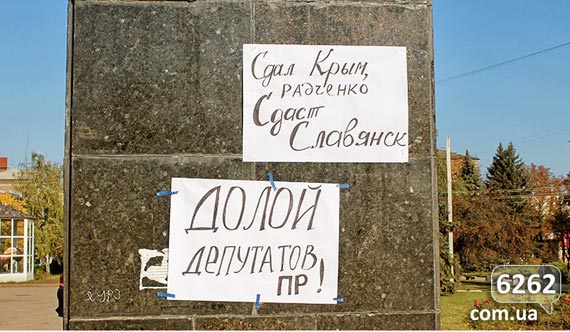 Сдал Крым,
РАДЧЕНКО
Сдаст
Славянск
ДОЛОЙ
ДЕПУТАТОВ
ПР!
6262
com.ua